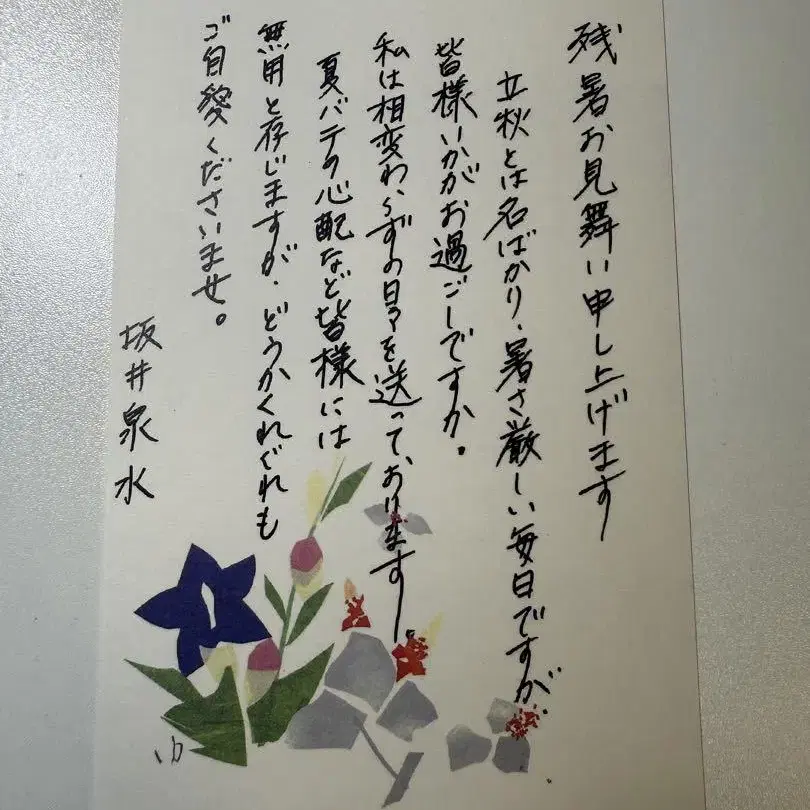 残暑お見舞い申し上げます
立秋とは名ばかり、暑さ厳しい毎日ですが、
皆様いかがお過ごしですか。
私は相変わらずの日々を送っております。
夏バテの心配など皆様には
無用と存じますが、どうかくれぐれも
ご自愛くださいませ。
坂井泉水
ゆ